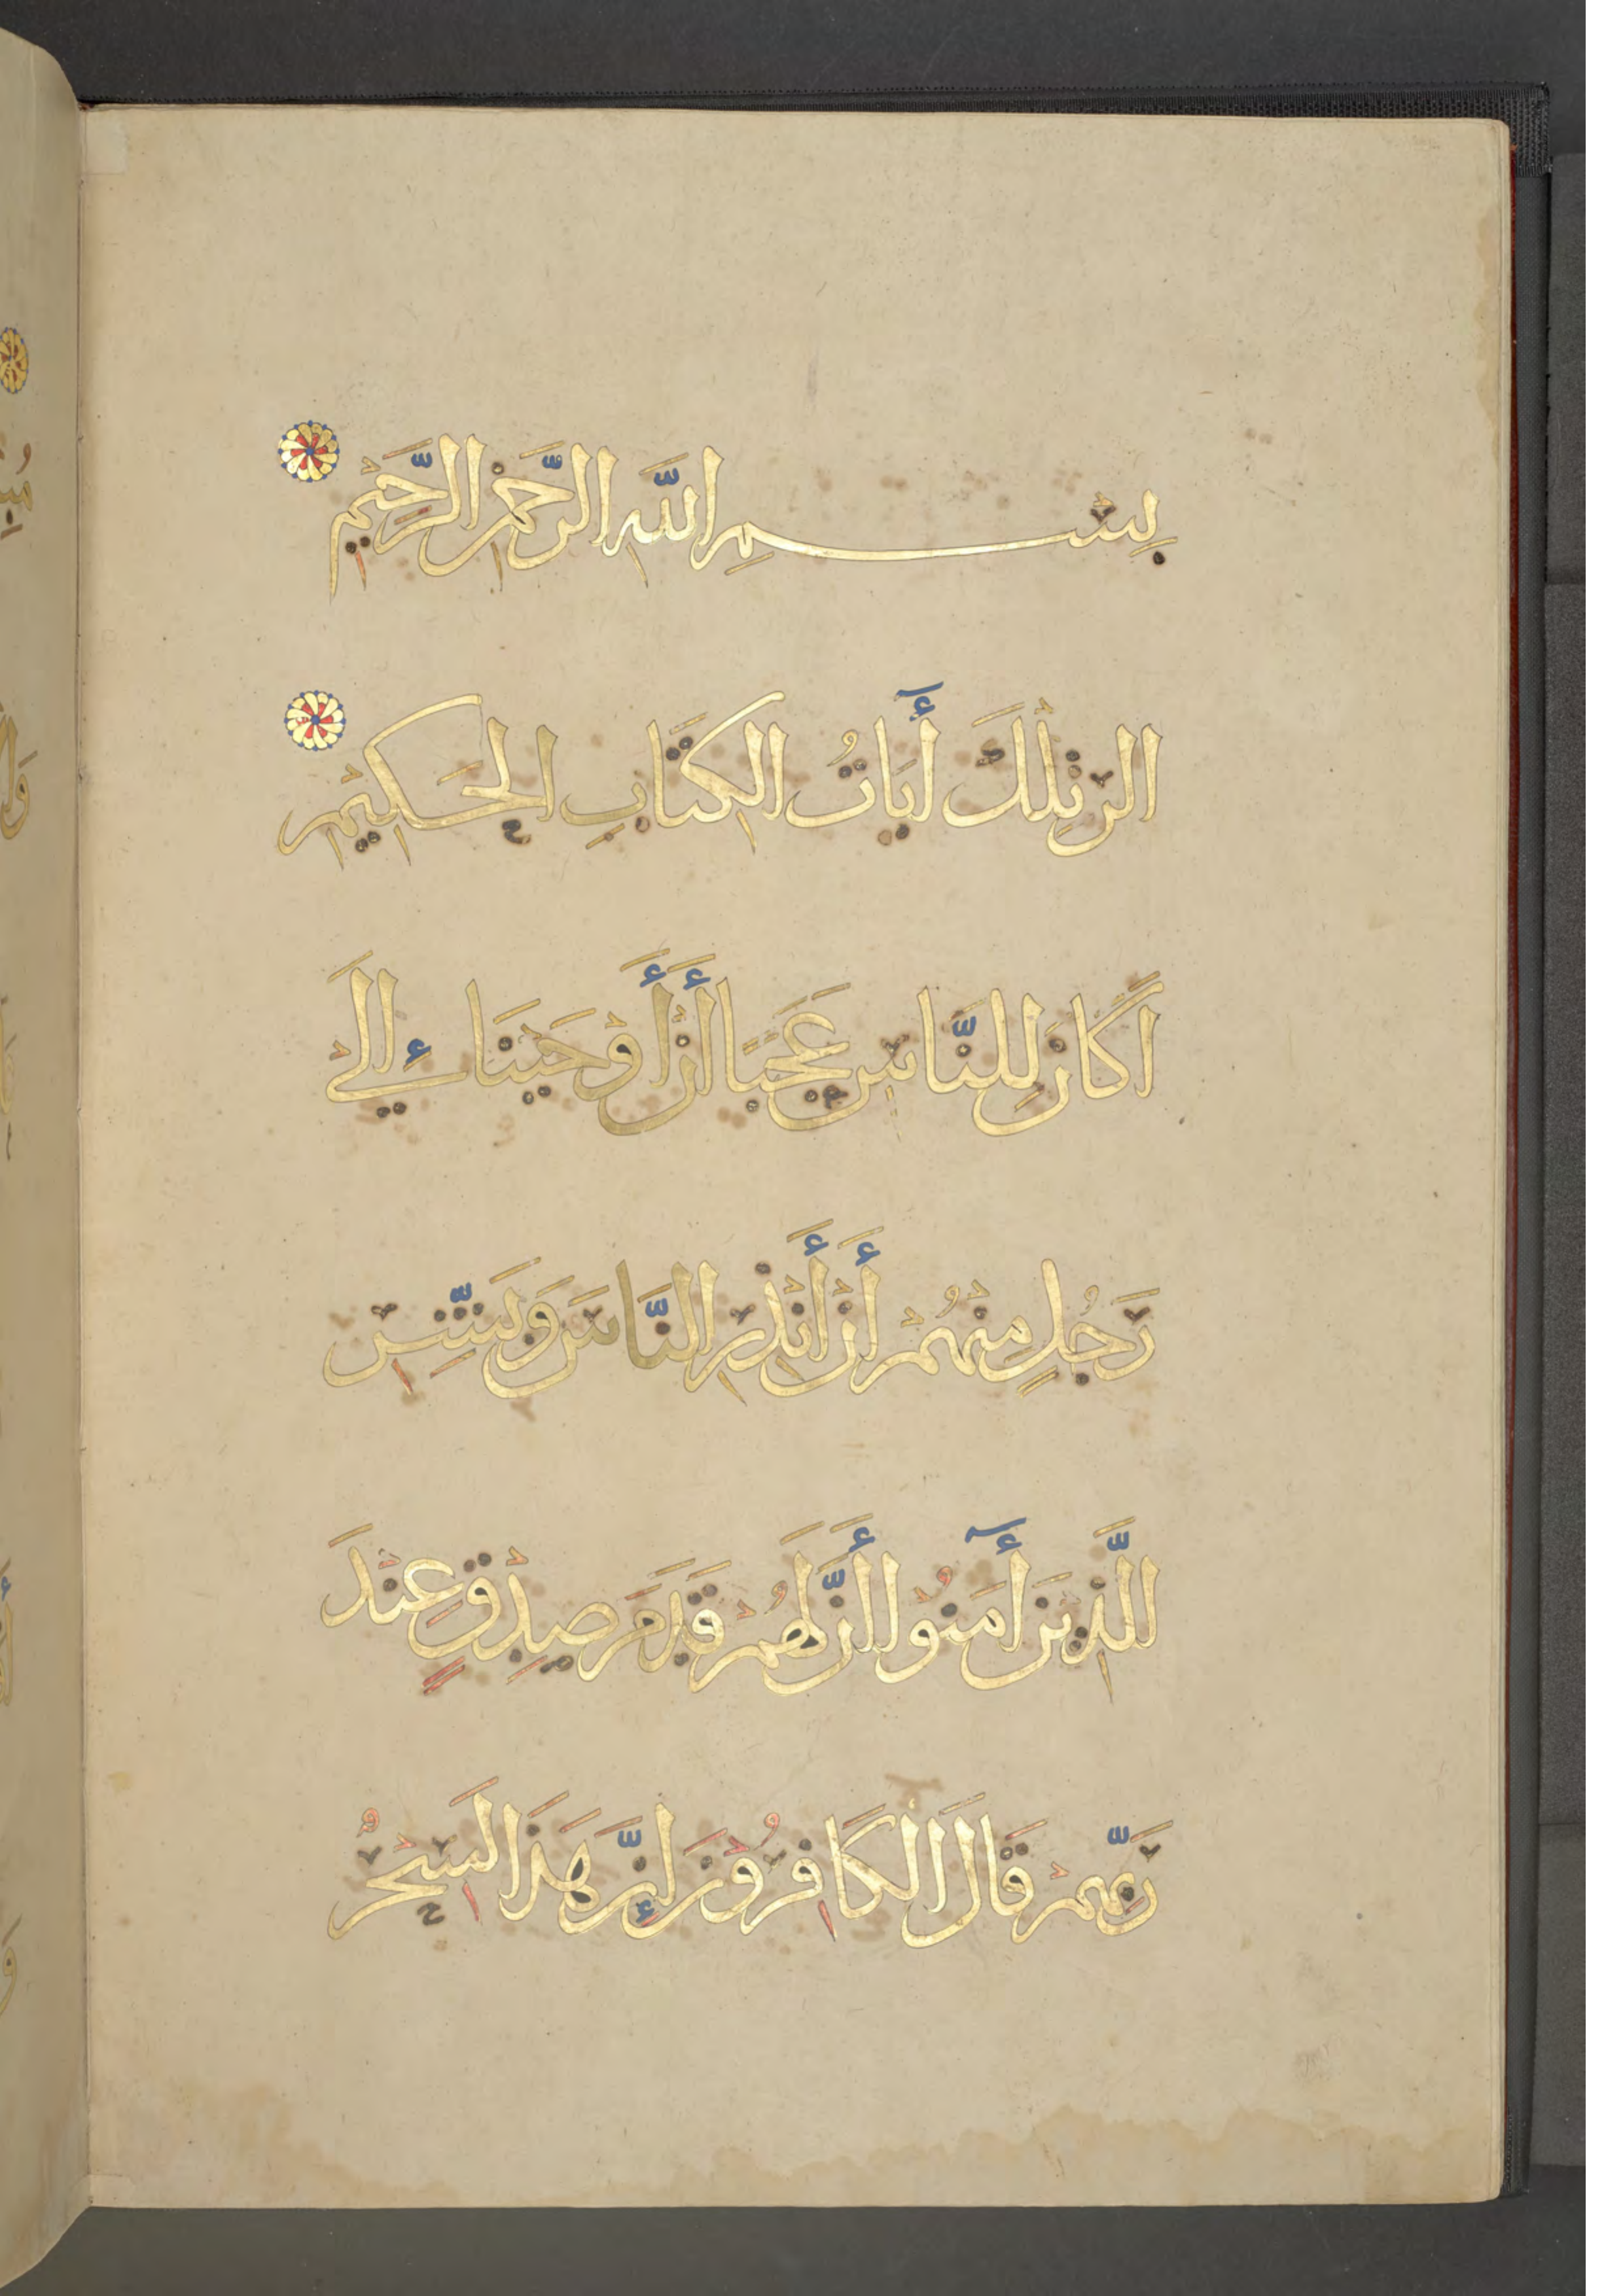 بِسْمِ اللَّهِ الرَّحْمَنِ الرَّحِيْمِ
الر تِلْكَ أٓيَاتُ الكِتَابِ الحَكِيْمِ
اَكَانَ لِلنَّاسِ عَجَبًا أَنْ أَوْحَيْنَاء إِلَيْ
رَجُلٍ مِنْهُمْ أَنْ أَنْذِرِ النَّاسَ وَبَشِّرِ
الَّذِيْنَ أٓمَنُوا أَنَّ لَهُمْ قَدَمَ صِدْقٍ عِنْدَ
رَبِّهِمْ قَالَ الكَافِرُوْنَ إِنَّ هَذَا لَسِحْرُ